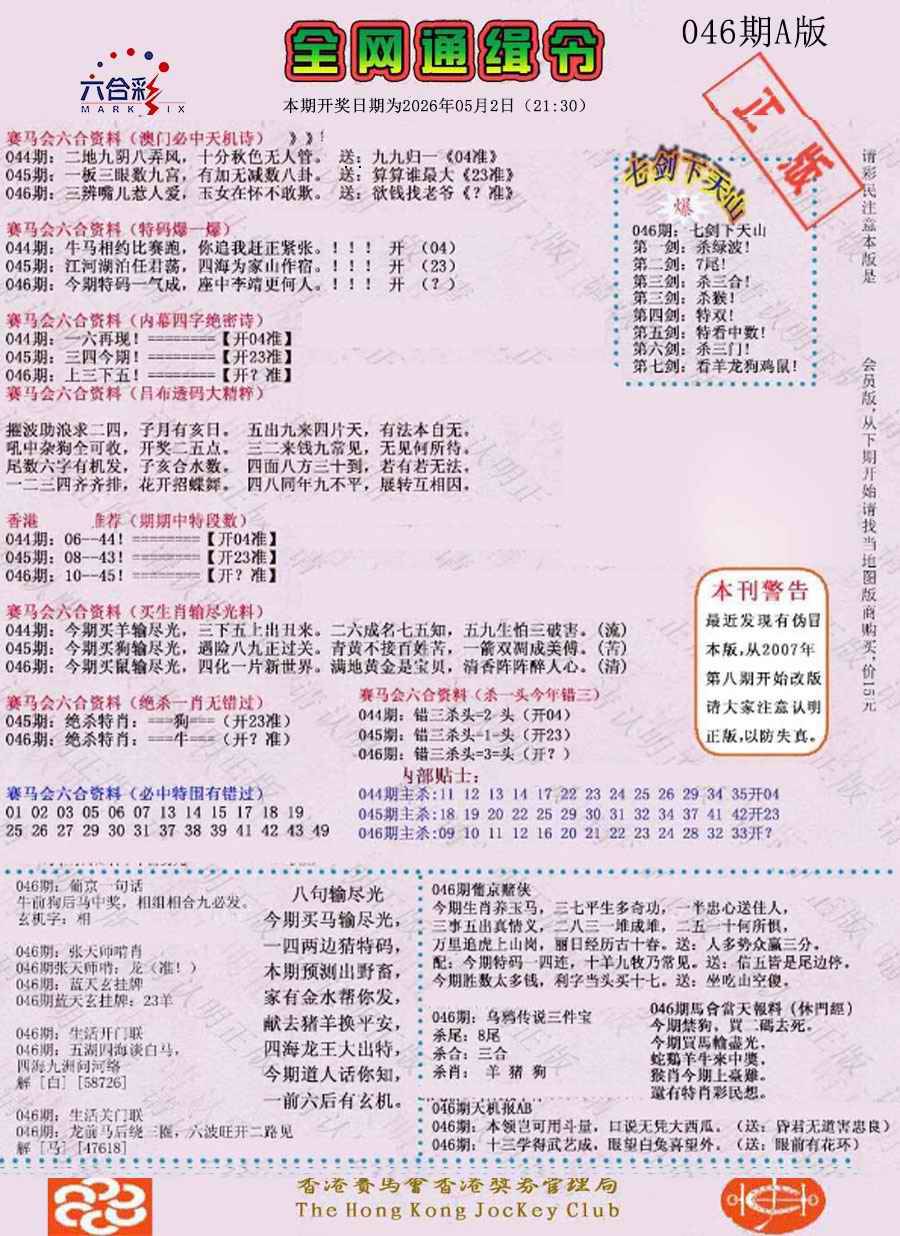 046期A版
全网通缉令
六合彩
MARK SIX
本期开奖日期为2026年05月2日（21:30）
正版
赛马会六合资料（澳门必中天机诗） 》》!
044期：二地九阴八弄风，十分秋色无人管。 送：九九归一《04准》
045期：一板三眼数九宫，有加无减数八卦。 送：算算谁最大《23准》
046期：三辨嘴儿惹人爱，玉女在怀不敢欺。 送：欲钱找老爷《？准》
赛马会六合资料（特码爆一爆）
044期：牛马相约比赛跑，你追我赶正紧张。！！！ 开 （04）
045期：江河湖泊任君荡，四海为家山作宿。！！！ 开 （23）
046期：今期特码一气成，座中李靖更何人。！！！ 开 （？）
赛马会六合资料（内幕四字绝密诗）
044期：一六再现！========【开04准】
045期：三四今期！========【开23准】
046期：上三下五！========【开？准】
赛马会六合资料（吕布透码大精粹）
摧波助浪求二四，子月有亥日。 五出九来四片天，有法本自无。
吼中杂狗全可收，开奖二五点。 三二来钱九常见，无见何所待。
尾数六字有机发，子亥合水数。 四面八方三十到，若有若无法。
一二三四齐齐排，花开招蝶舞。 四八同年九不平，展转互相因。
香港 推荐（期期中特段数）
044期：06--44！========【开04准】
045期：08--43！========【开23准】
046期：10--45！========【开？准】
赛马会六合资料（买生肖输尽光料）
044期：今期买羊输尽光，三下五上出丑来。二六成名七五知，五九生怕三破害。(流)
045期：今期买狗输尽光，遇险八九正过关。青黄不接百姓苦，一箭双凋成美傅。(苦)
046期：今期买鼠输尽光，四化一片新世界。满地黄金是宝贝，清香阵阵醉人心。(清)
赛马会六合资料（绝杀一肖无错过）
045期：绝杀特肖：===狗===（开23准）
046期：绝杀特肖：===牛===（开？准）
赛马会六合资料（杀一头今年错三）
044期：错三杀头=2-头（开04）
045期：错三杀头-1-头（开23）
046期：错三杀头=3=头（开？）
赛马会六合资料（必中特围有错过）
01 02 03 05 06 07 13 14 15 17 18 19
25 26 27 29 30 31 37 38 39 41 42 43 49
内部贴士：
044期主杀:11 12 13 14 17 22 23 24 25 26 29 34 35开04
045期主杀:18 19 20 22 25 29 30 31 32 34 37 41 42开23
046期主杀:09 10 11 12 16 20 21 22 23 24 28 32 33开?
七剑下天山
爆
046期：七剑下天山
第一剑：杀绿波！
第二剑：7尾！
第三剑：杀三合！
第三剑：杀猴！
第四剑：特双！
第五剑：特看中数！
第六剑：杀三门！
第七剑：看羊龙狗鸡鼠！
请彩民注意本版是
会员版，从下期开始请找当地图版商购买，价15元
本刊警告
最近发现有伪冒
本版，从2007年
第八期开始改版
请大家注意认明
正版，以防失真。
046期：葡京一句话
牛前狗后马中奖，相组相合九必发。
玄机字：相
046期：张天师啃肖
046期张天师啃：龙（准！）
046期：蓝天玄挂牌
046期蓝天玄挂牌：23羊
046期：生活开门联
046期：五湖四海谈白马，
四海九洲问河络
解［白］[58726]
046期：生活关门联
046期：龙前马后绕三圈，六波旺开二路见
解［马］[47618]
八句输尽光
今期买马输尽光，
一四两边猜特码，
本期预测出野畜，
家有金水帮你发，
献去猪羊换平安，
四海龙王大出特，
今期道人话你知，
一前六后有玄机。
046期葡京赌侠
今期生肖养玉马，三七平生多奇功，一半忠心送佳人，
三事五出真情义，二八三一堆成堆，二五一十何所惧，
万里追虎上山岗，丽日经历古十春。送：人多势众赢三分。
配：今期特码一四连，十羊九牧乃常见。送：信五皆是尾边停。
今期胜数太多钱，利字当头买十七。送：坐吃山空傻。
046期：乌鸦传说三件宝
杀尾：8尾
杀合：三合
杀肖： 羊 猪 狗
046期馬會當天報料（休門經）
今期禁狗，買二碼去死。
今期買馬輸盡光，
蛇鷄羊牛來中奬。
猴肖今期上臺難。
還有特肖彩民想。
046期天机报AB
046期：本领岂可用斗量，口说无凭大西瓜。（送：昏君无道害忠良）
046期：十三学得武艺成，眼望白兔喜望外。（送：眼前有花环）
香港賽馬會香港獎券管理局
The Hong Kong JocKey Club